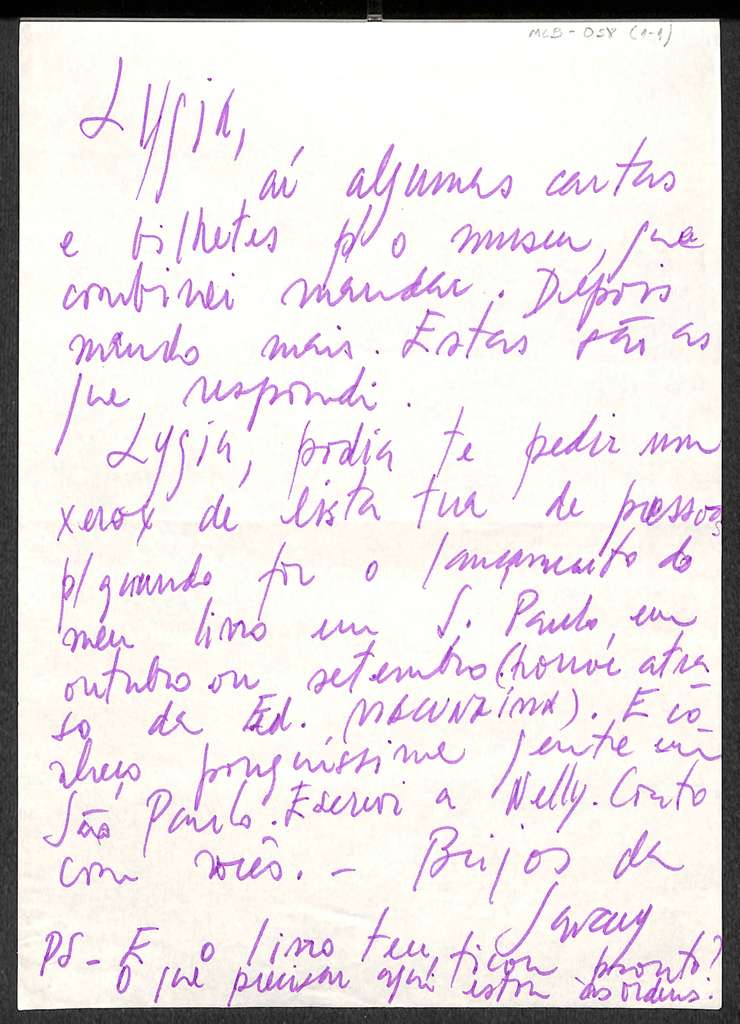 MLB - 058 (1-1)
Lygia,
aí algumas cartas
e bilhetes p/ o museu, que
combinei mandar. Depois
mando mais. Estas são as
que respondi.
Lygia, podia te pedir um
xerox de lista tua de pessoas
p/ quando for o lançamento do
meu livro em S. Paulo, em
outubro ou setembro (houve atra
so da Ed. MACUNAÍMA). E co
nheço pouquíssima gente em
São Paulo. Escrevi a Nelly. Conto
com vocês. - Beijos da
PS - E o livro teu, ficou pronto?
O que precisar aqui estou às ordens.